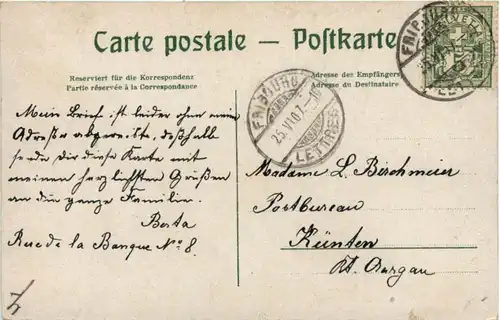 Carte postale — Postkarte
Reserviert für die Korrespondenz
Partie réservée à la Correspondance
Adresse des Empfängers
Adresse du Destinataire
FRIBOURG
25.VI.07.
LETTRES
Mein Brief ist leider ohne meine
Adresse abgereiste, desshalb
sende dir diese Karte mit
meinen herzlichsten Grüßen
an die ganze Familie.
Berta
Rue de la Banque No 8.
Madame L. Birchmeier
Postbureau
Künten
Kt. Aargau